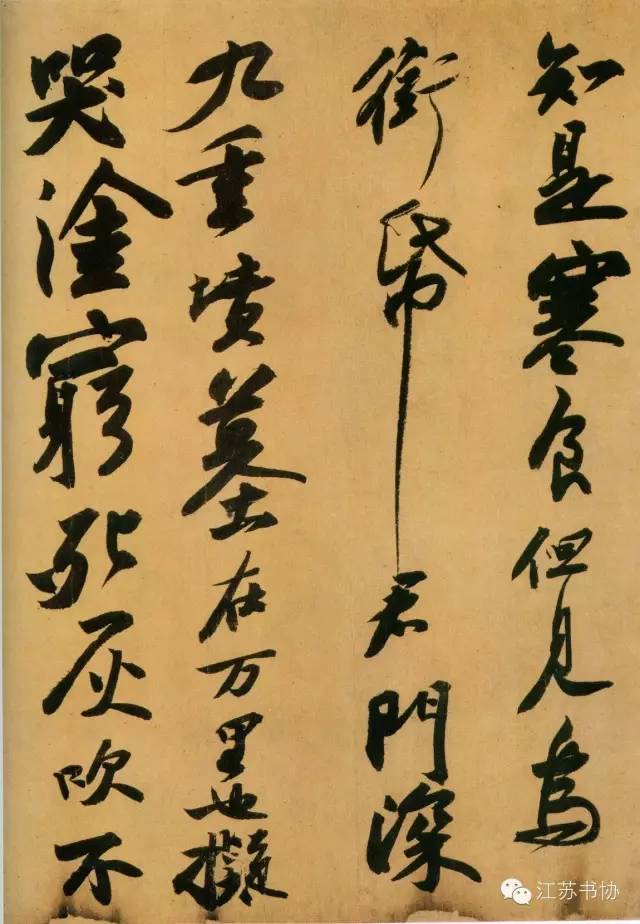 知是寒食但見烏
銜帋君門深
九重墳墓在万里也擬
哭塗窮死灰吹不
江苏书协